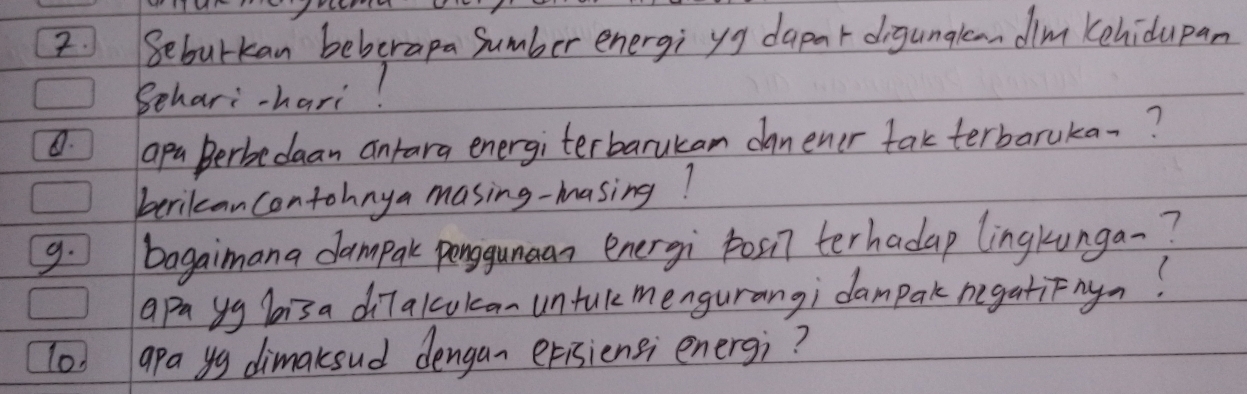 7. Sebutkan beberapa Sumber energi yg dapat digunakan dlm kehidupan
Sehari-hari!
8. apa perbedaan antara energi terbarukan dan ener tak terbarukan?
berikan contohnya masing-masing!
9. bagaimana dampak penggunaan energi fosil terhadap lingkungan?
apa yg bisa dilakukan untuk mengurangi dampak negatifnya?
10. apa yg dimaksud dengan efisiensi energi?